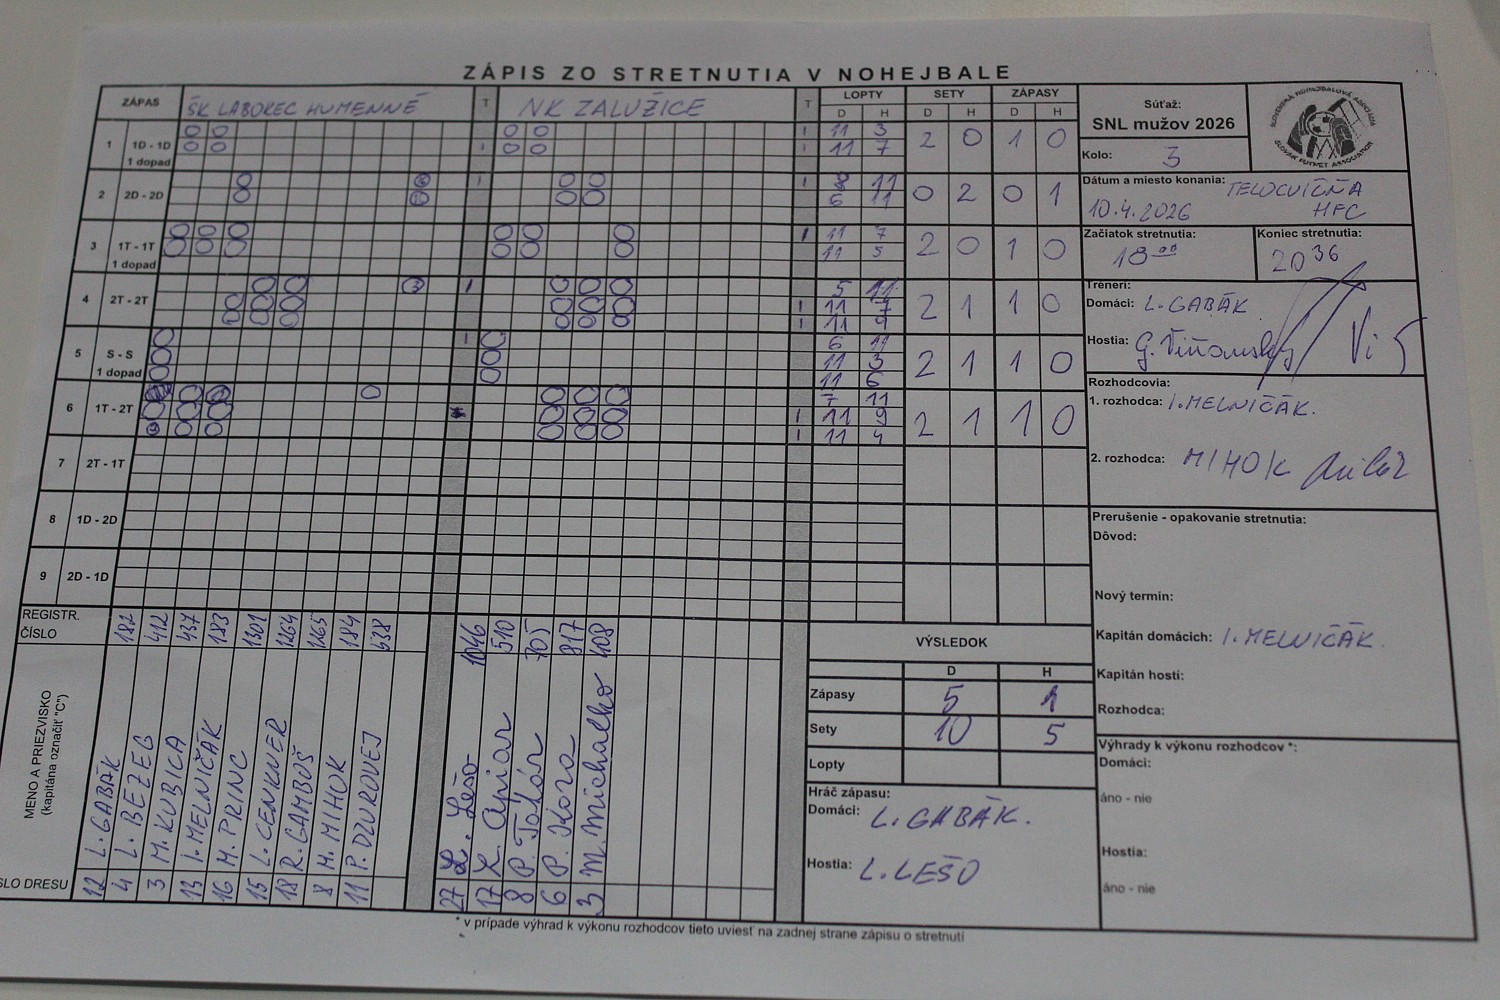 ZÁPIS ZO STRETNUTIA V NOHEJBALE
ZÁPAS ŠK LABOREC HUMENNÉ T NK ZALUŽICE T LOPTY SETY ZÁPASY
D H D H D H
1 1D - 1D 11 3 2 0 1 0
1 dopad 11 7
2 2D - 2D 8 11 0 2 0 1
6 11
3 1T - 1T 11 7 2 0 1 0
1 dopad 11 5
4 2T - 2T 5 11 2 1 1 0
11 7
11 9
5 S - S 6 11 2 1 1 0
1 dopad 11 3
11 6
6 1T - 2T 7 11 2 1 1 0
11 9
11 4
7 2T - 1T
8 1D - 2D
9 2D - 1D
REGISTR. ČÍSLO 182 412 437 183 1301 1264 1265 184 638 1046 510 705 817 408
MENO A PRIEZVISKO
(kapitána označiť "C")
L. GABÁK
L. BEZEG
M. KUBICA
I. MELNIČÁK
M. PRINC
L. CENKNER
R. GAMBOŠ
M. MIHOK
P. DZUROVEJ
L. Lešo
P. Tokár
P. Koza
M. Michalko
SLO DRESU 12 4 3 13 16 15 18 8 11 27 17 8 6 3
* v prípade výhrad k výkonu rozhodcov tieto uviesť na zadnej strane zápisu o stretnutí
VÝSLEDOK
D H
Zápasy 5 1
Sety 10 5
Lopty
Hráč zápasu:
Domáci: L. GABÁK.
Hostia: L. LEŠO
Súťaž:
SNL mužov 2026
Kolo: 3
SLOVENSKÁ NOHEJBALOVÁ ASOCIÁCIA
SLOVAK FUTNET ASSOCIATION
Dátum a miesto konania: TELOCVIČŇA
10.4.2026 HFC
Začiatok stretnutia: Koniec stretnutia:
18 00 20 36
Tréneri:
Domáci: L. GABÁK
Hostia:
Rozhodcovia:
1. rozhodca: I. MELNIČÁK.
2. rozhodca: MIHOK
Prerušenie - opakovanie stretnutia:
Dôvod:
Nový termín:
Kapitán domácich: I. MELNIČÁK.
Kapitán hostí:
Rozhodca:
Výhrady k výkonu rozhodcov *:
Domáci:
áno - nie
Hostia:
áno - nie